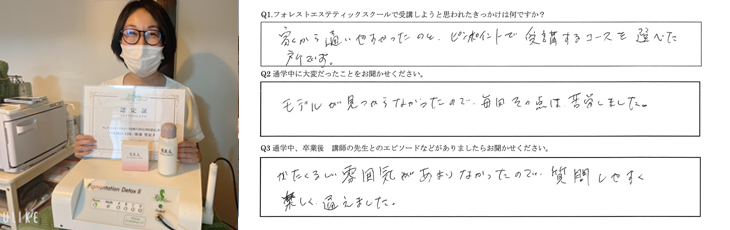 Q1.フォレストエステティックスクールで受講しようと思われたきっかけは何ですか？
家から通いやすかったのと、ピンポイントで受講するコースを選べた
所です。
Q2 通学中に大変だったことをお聞かせください。
モデルが見つからなかったので、毎回その点は苦労しました。
Q3 通学中、卒業後　講師の先生とのエピソードなどがありましたらお聞かせください。
かたくるしい雰囲気があまりなかったので、質問しやすく
楽しく通えました。
認定証
Pigmentation Detox II
ULIKE